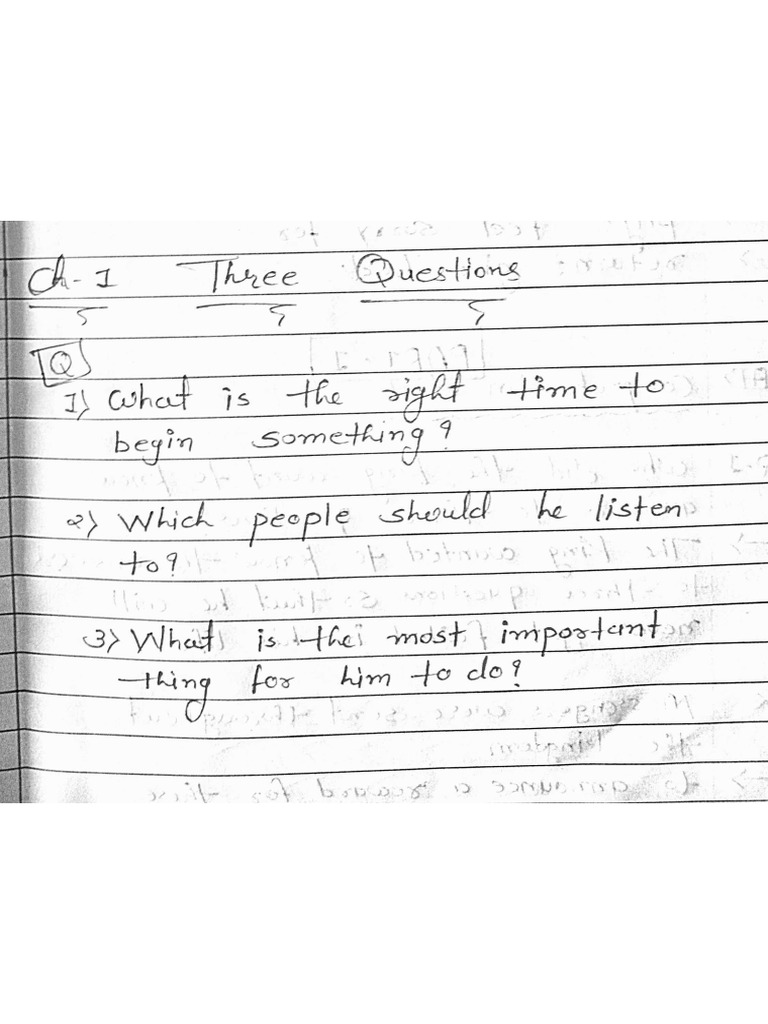 Ch-1 Three Questions
Q
1) What is the right time to
begin something?
2) Which people should he listen
to?
3) What is the most important
thing for him to do?